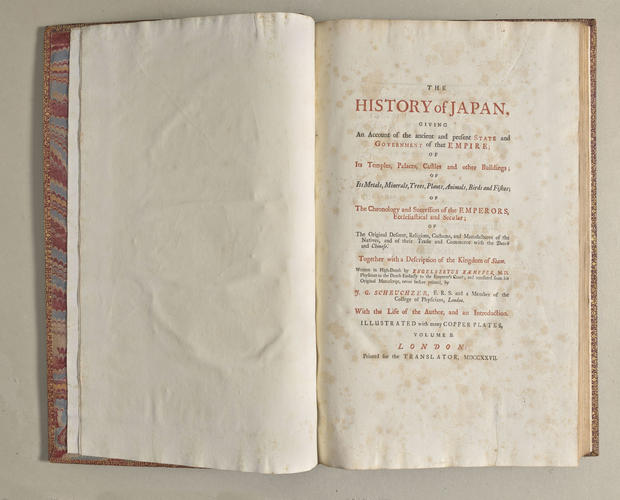 THE
HISTORY of JAPAN,
GIVING
An Account of the ancient and present STATE and
GOVERNMENT of that EMPIRE;
OF
Its Temples, Palaces, Castles and other Buildings;
OF
Its Metals, Minerals, Trees, Plants, Animals, Birds and Fishes;
OF
The Chronology and Succession of the EMPERORS,
Ecclesiastical and Secular;
OF
The Original Descent, Religions, Customs, and Manufactures of the
Natives, and of their Trade and Commerce with the Dutch
and Chinese.
Together with a Description of the Kingdom of Siam.
Written in High-Dutch by ENGELBERTUS KÆMPFER, M.D.
Physician to the Dutch Embassy to the Emperor's Court; and translated from his
Original Manuscript, never before printed, by
J. G. SCHEUCHZER, F. R. S. and a Member of the
College of Physicians, London.
With the Life of the Author, and an Introduction.
ILLUSTRATED with many COPPER PLATES,
VOLUME
LONDON:
Printed for the TRANSLATOR, MDCCXXVII.